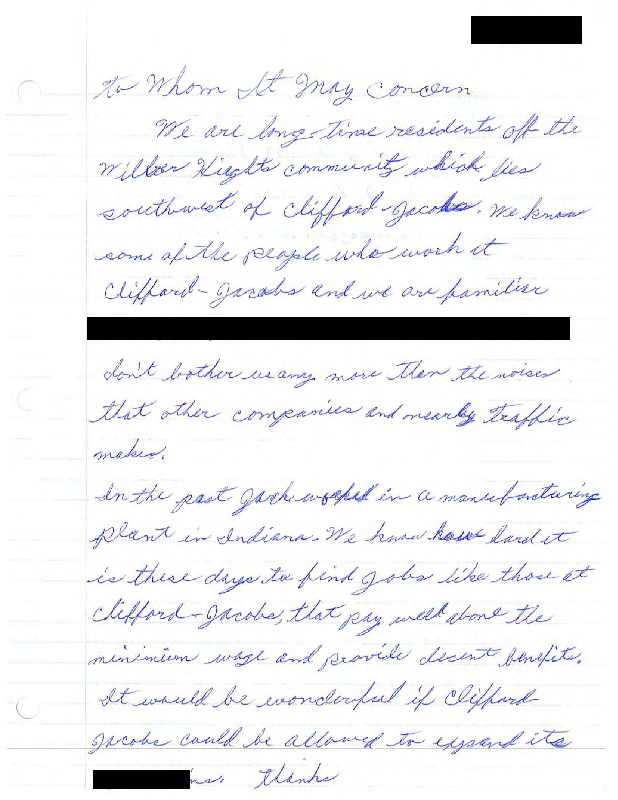 to Whom It May Concern
We are long-time residents off the
Wilber Hieghts community which lies
southwest of Clifford-Jacobs. We know
some of the people who work at
Clifford-Jacobs and we are familier
don't bother us any more then the noises
that other companies and nearby traffic
makes.
In the past Jack worked in a manufacturing
plant in Indiana. We know how hard it
is these days to find jobs like those at
Clifford-Jacobs, that pay well above the
minimium wage and provide decent benefits.
It would be wonderful if Clifford-
Jacobs could be allowed to expand its
ns. thanks